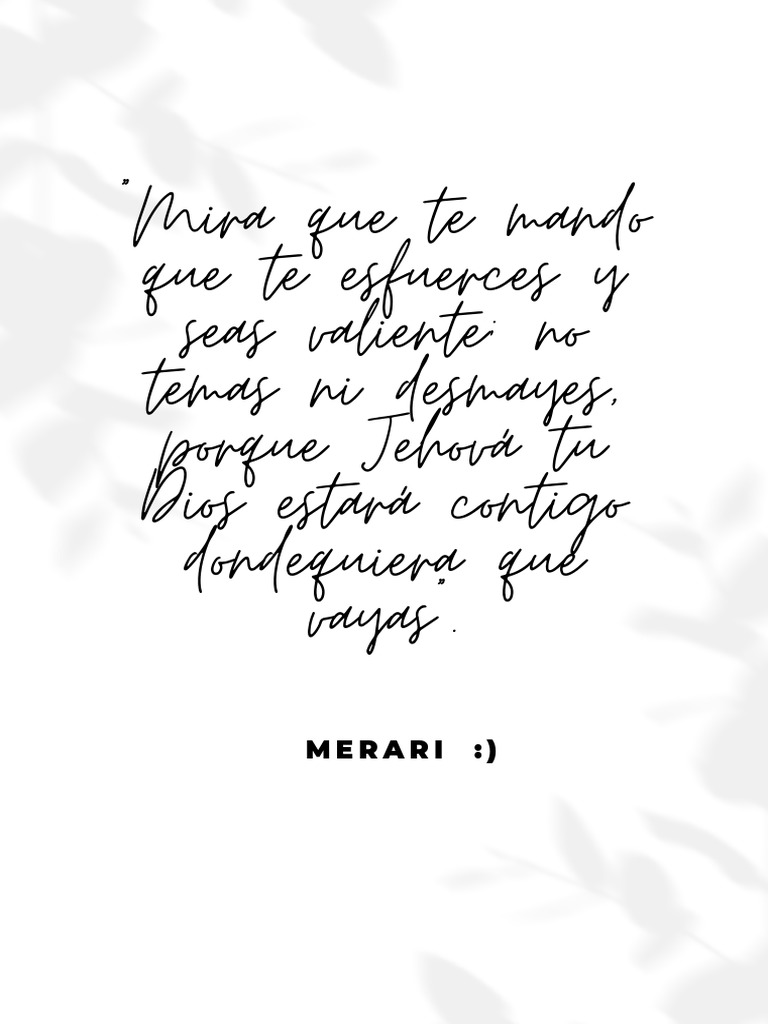 "Mira que te mando
que te esfuerces y
seas valiente; no
temas ni desmayes,
porque Jehová tu
Dios estará contigo
dondequiera que
vayas".
MERARI :)